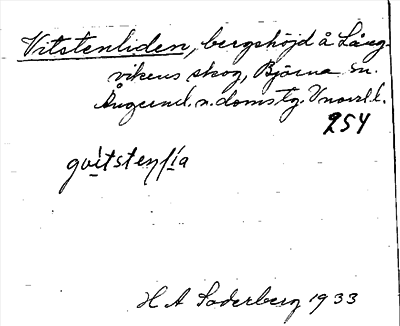 Vitstenliden, bergshöjd å Lång-
vikens skog, Björna sn.
Ångerml. n. doms tg. Vnorrl. l.
254
gvitstenlia
H A Söderberg 1933